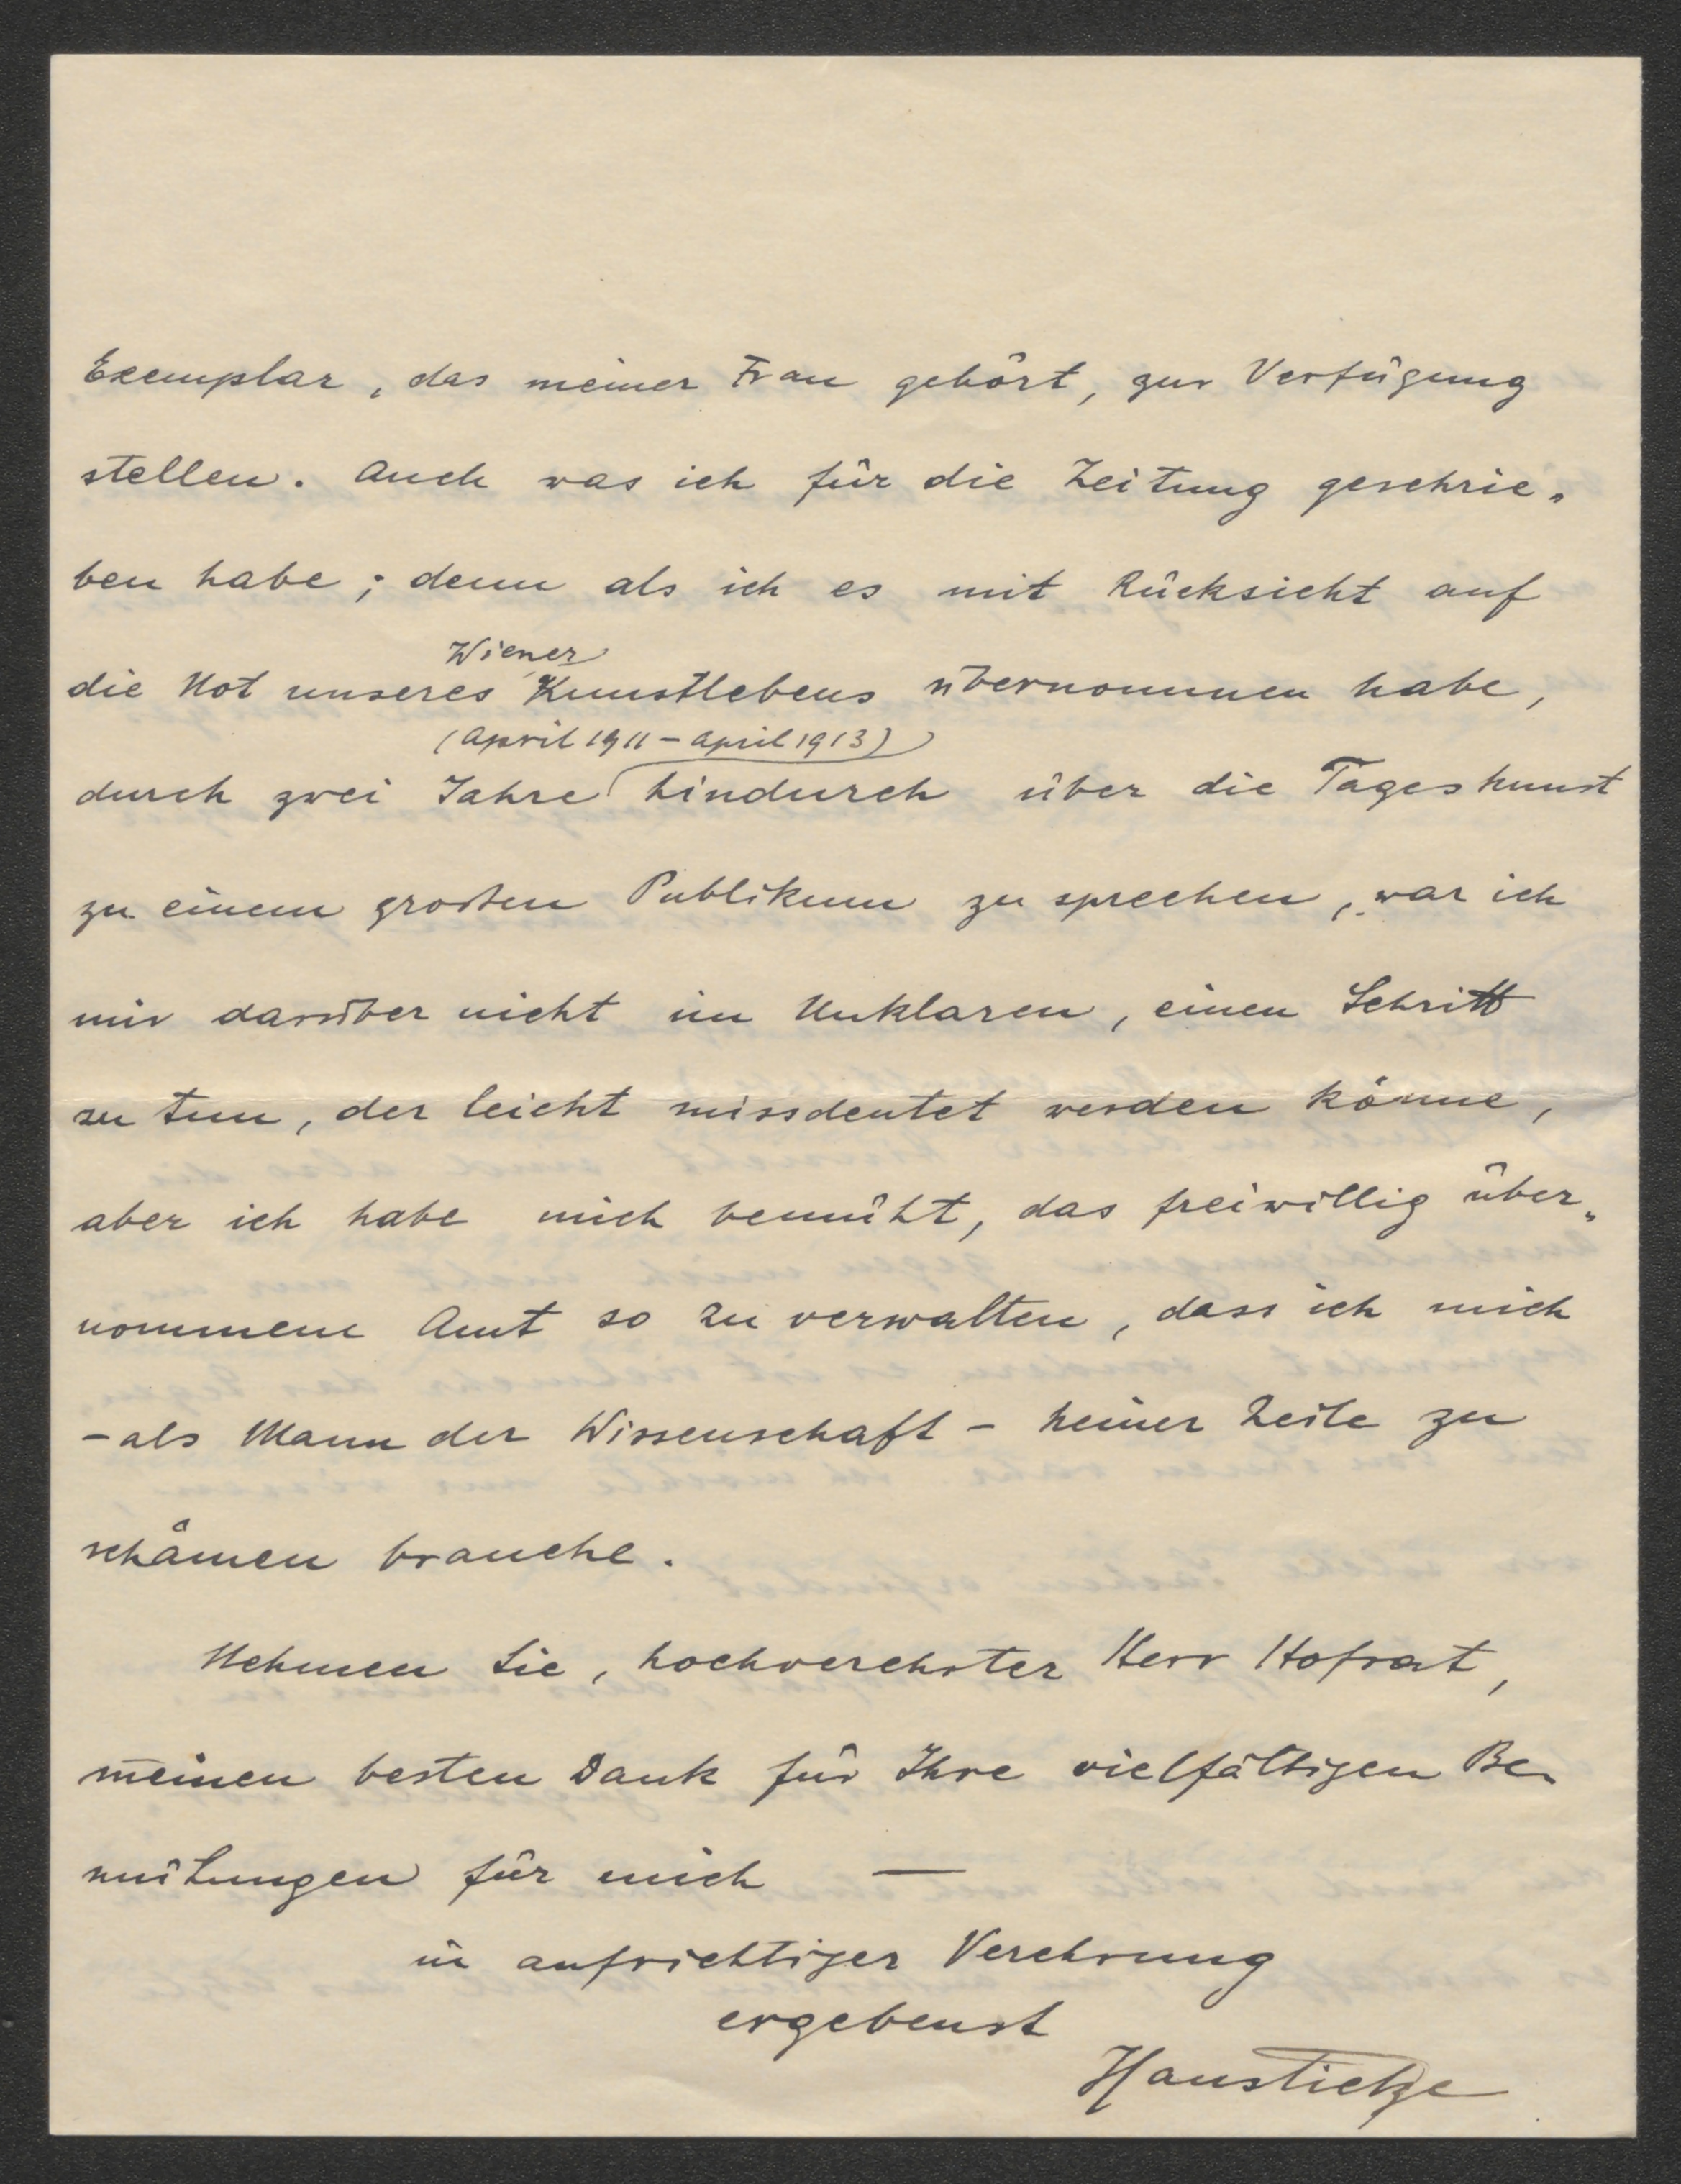 Exemplar, das meiner Frau gehört, zur Verfügung
stellen. Auch was ich für die Zeitung geschrie-
ben habe; denn als ich es mit Rücksicht auf
Wiener
die Not unseres Kunstlebens übernommen habe,
(April 1911 – April 1913)
durch zwei Jahre hindurch über die Tageskunst
zu einem grossen Publikum zu sprechen, war ich
mir darüber nicht im Unklaren, einen Schritt
zu tun, der leicht missdeutet werden könne,
aber ich habe mich bemüht, das freiwillig über-
nommene Amt so zu verwalten, dass ich mich
– als Mann der Wissenschaft – keiner Zeile zu
schämen brauche.
Nehmen Sie, hochverehrter Herr Hofrat,
meinen besten Dank für Ihre vielfältigen Be-
mühungen für mich —
in aufrichtiger Verehrung
ergebenst
Hans Tietze